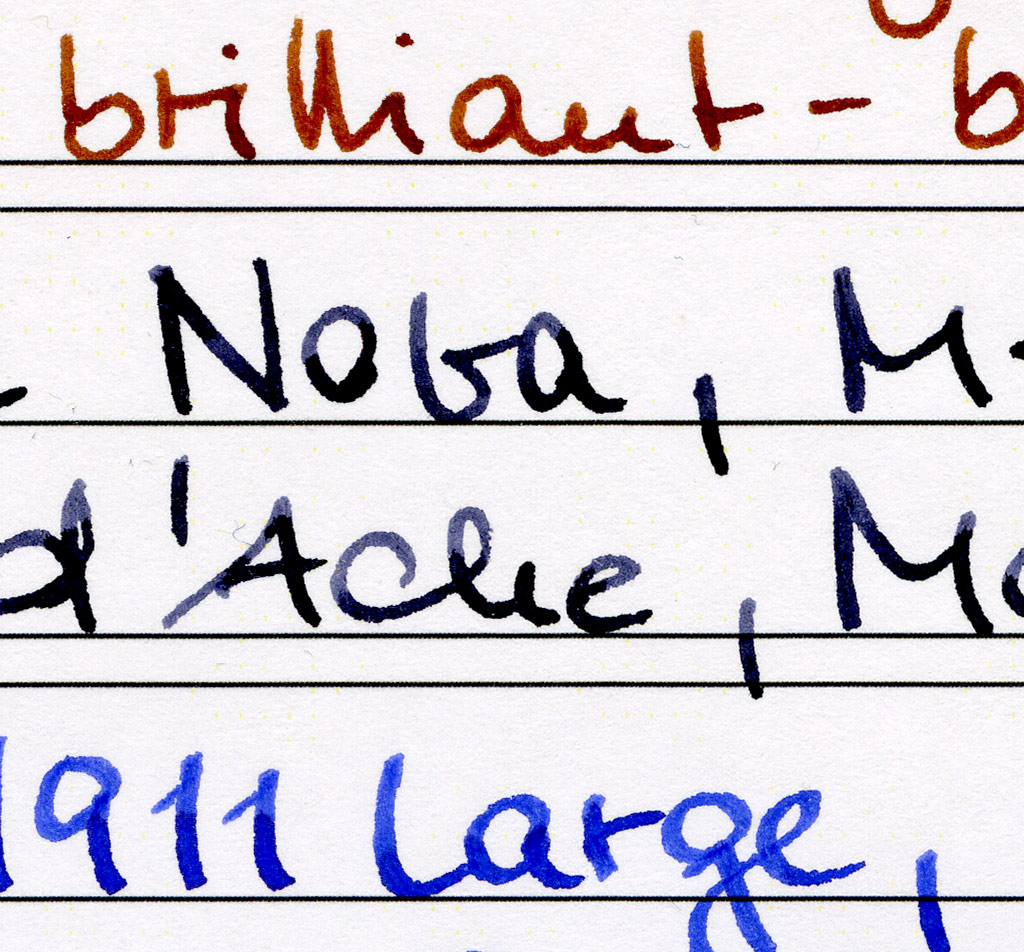 brilliant - b
Noba, M
d'Ache, Mo
1911 Large,